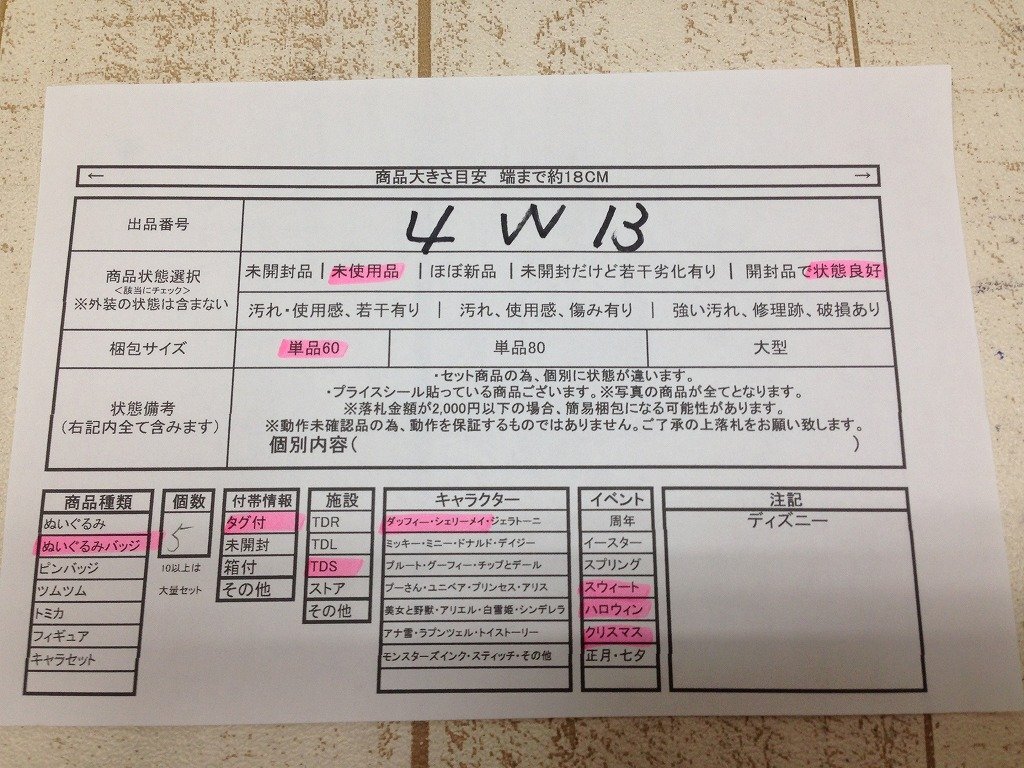 ← 商品大きさ目安 端まで約18CM →
出品番号 4 W 13
商品状態選択
<該当にチェック>
※外装の状態は含まない
未開封品 | 未使用品 | ほぼ新品 | 未開封だけど若干劣化有り | 開封品で状態良好
汚れ・使用感、若干有り | 汚れ、使用感、傷み有り | 強い汚れ、修理跡、破損あり
梱包サイズ 単品60 単品80 大型
状態備考
(右記内全て含みます)
・セット商品の為、個別に状態が違います。
・プライスシール貼っている商品ございます。※写真の商品が全てとなります。
※落札金額が2,000円以下の場合、簡易梱包になる可能性があります。
※動作未確認品の為、動作を保証するものではありません。ご了承の上落札をお願い致します。
個別内容( )
商品種類
ぬいぐるみ
ぬいぐるみバッジ
ピンバッジ
ツムツム
トミカ
フィギュア
キャラセット
個数
5
10以上は
大量セット
付帯情報
タグ付
未開封
箱付
その他
施設
TDR
TDL
TDS
ストア
その他
キャラクター
ダッフィー・シェリーメイ・ジェラトーニ
ミッキー・ミニー・ドナルド・デイジー
プルート・グーフィー・チップとデール
プーさん・ユニベア・プリンセス・アリス
美女と野獣・アリエル・白雪姫・シンデレラ
アナ雪・ラプンツェル・トイストーリー
モンスターズインク・スティッチ・その他
イベント
周年
イースター
スプリング
スウィート
ハロウィン
クリスマス
正月・七夕
注記
ディズニー